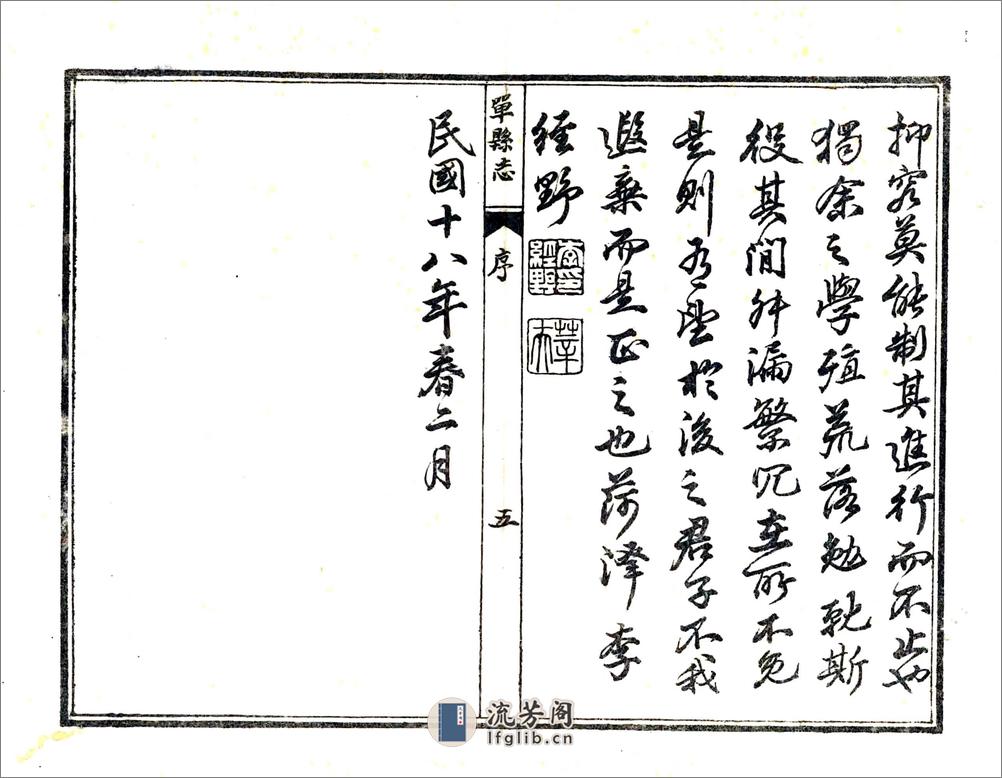 抑究莫能制其進行而不止也
獨余之學殖荒落勉執斯
役其間舛漏繁冗在所不免
是則有望於後之君子不我
遐棄而是正之也菏澤李
經野
李印經野
莘夫
單縣志
序
五
民國十八年春二月
流芳阁
lfglib.cn